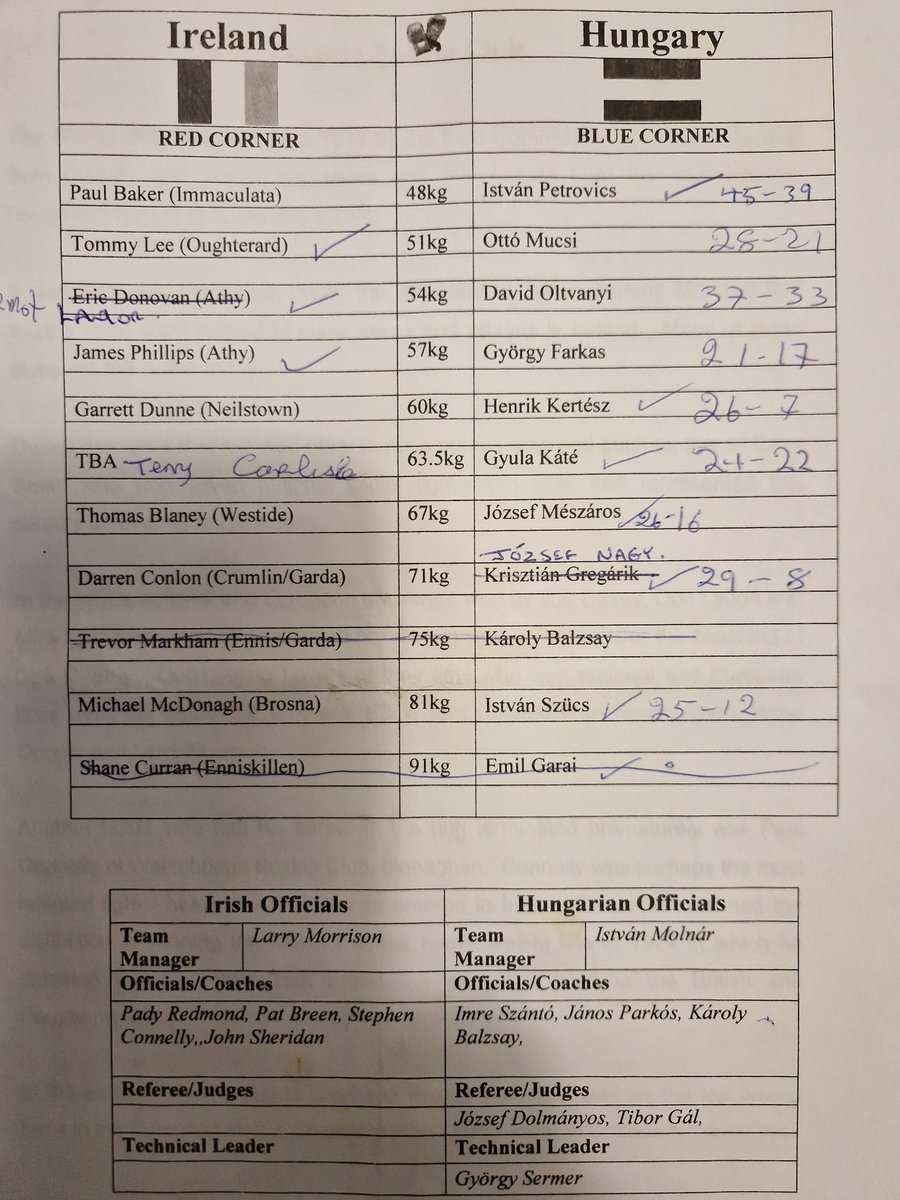 Ireland Hungary
RED CORNER BLUE CORNER
Paul Baker (Immaculata) 48kg István Petrovics ✓ 45-39
Tommy Lee (Oughterard) ✓ 51kg Ottó Mucsi 28-21
Eric Donovan (Athy) ✓ 54kg David Oltvanyi 37-33
James Phillips (Athy) ✓ 57kg György Farkas 21-17
Garrett Dunne (Neilstown) 60kg Henrik Kertész ✓ 26-7
TBA Terry Carlisle 63.5kg Gyula Káté ✓ 24-22
Thomas Blaney (Westide) 67kg József Mészáros ✓ 26-16
JÓZSEF NAGY.
Darren Conlon (Crumlin/Garda) 71kg Krisztián Gregárik ✓ 29-8
Trevor Markham (Ennis/Garda) 75kg Károly Balzsay
Michael McDonagh (Brosna) 81kg István Szücs ✓ 25-12
Shane Curran (Enniskillen) 91kg Emil Garai ✓
Irish Officials Hungarian Officials
Team Manager Larry Morrison Team Manager István Molnár
Officials/Coaches Officials/Coaches
Pady Redmond, Pat Breen, Stephen Imre Szántó, János Parkós, Károly
Connelly,,John Sheridan Balzsay,
Referee/Judges Referee/Judges
József Dolmányos, Tibor Gál,
Technical Leader Technical Leader
György Sermer